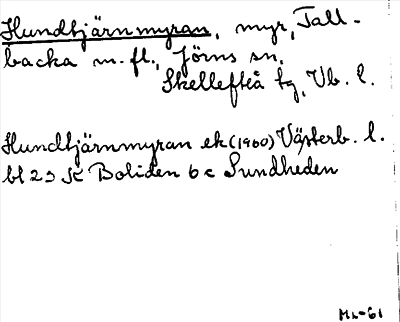 Hundtjärnmyran, myr, Tall-
backa m. fl., Jörns sn,
Skellefteå tg, Vb. l.
Hundtjärnmyran ek (1960) Västerb. l.
bl 23 K Boliden 6 c Sundheden